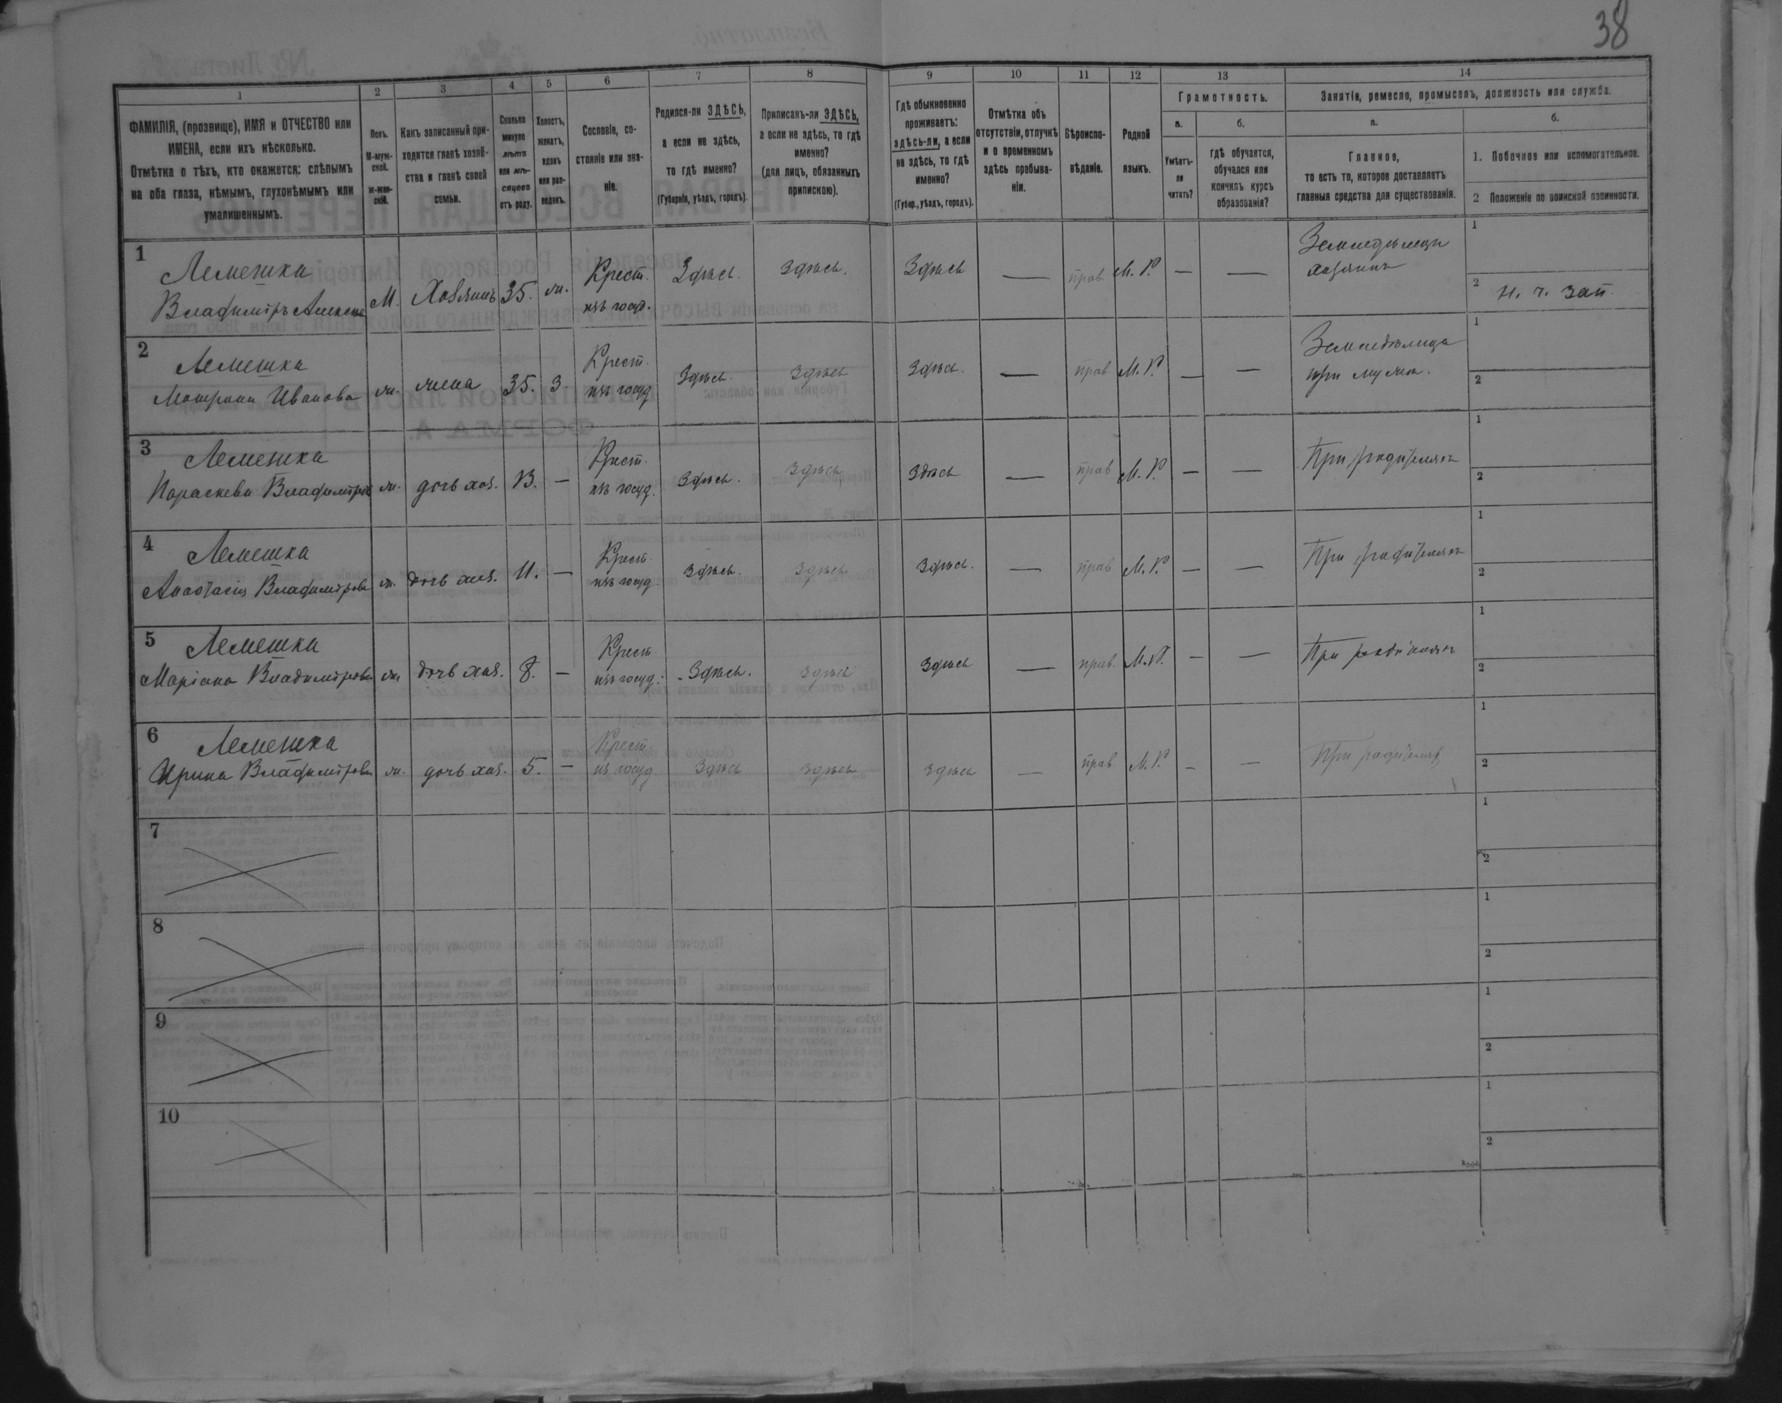 38
1 2 3 4 5 6 7 8 9 10 11 12 13 14
ФАМИЛІЯ, (прозвище), ИМЯ и ОТЧЕСТВО или
ИМЕНА, если ихъ нѣсколько.
Отмѣтка о тѣхъ, кто окажется: слѣпымъ
на оба глаза, нѣмымъ, глухонѣмымъ или
умалишеннымъ.
Полъ.
М-муж-
ской.
ж-жен-
скій.
Какъ записанный при-
ходится главѣ хозяй-
ства и главѣ своей
семьи.
Сколько
минуло
лѣтъ
или мѣ-
сяцевъ
отъ роду.
Холостъ,
женатъ,
вдовъ
или раз-
веденъ.
Сословіе, со-
стояніе или зва-
ніе.
Родился-ли ЗДѢСЬ,
а если не здѣсь,
то гдѣ именно?
(Губернія, уѣздъ, городъ).
Приписанъ-ли ЗДѢСЬ,
а если не здѣсь, то гдѣ
именно?
(для лицъ, обязанныхъ
припискою).
Гдѣ обыкновенно
проживаетъ:
здѣсь-ли, а если
не здѣсь, то гдѣ
именно?
(Губер., уѣздъ, городъ).
Отмѣтка объ
отсутствіи, отлучкѣ
и о временномъ
здѣсь пребыва-
ніи.
Вѣроиспо-
вѣданіе.
Родной
языкъ.
Грамотность.
а.
Умѣетъ-
ли
читать?
б.
гдѣ обучается,
обучался или
кончилъ курсъ
образованія?
Занятіе, ремесло, промыселъ, должность или служба.
а.
Главное,
то есть то, которое доставляетъ
главныя средства для существованія.
б.
1. Побочное или вспомогательное.
2 Положеніе по воинской повинности.
1
Лемешка
Владимиръ
М. Хозяинъ 35. ж. Крест.
изъ госуд.
Здѣсь. Здѣсь. Здѣсь — прав. М. Р. — —
Земледѣлецъ
хозяинъ
1
2 н. ч. зап.
2
Лемешка
Иванова
ж. жена 35. З Крест.
изъ госуд.
Здѣсь. Здѣсь Здѣсь. — прав М. Р. — —
1
2
3
Лемешка
Параскева Владимирова
ж. дочь хоз. 13. — Крест.
изъ госуд.
Здѣсь. Здѣсь Здѣсь — прав М. Р. — —
При родителяхъ
1
2
4
Лемешка
Анастасія Владимирова
ж. дочь хоз. 11. — Крест.
изъ госуд
Здѣсь. Здѣсь Здѣсь. — прав М. Р. — —
При родителяхъ
1
2
5
Лемешка
Маріана Владимирова
ж. дочь хоз. 8. — Крест.
изъ госуд.
Здѣсь. Здѣсь Здѣсь — прав. М. Р. — —
При родителяхъ
1
2
6
Лемешка
Ирина Владимирова
ж. дочь хоз. 5. — Крест.
изъ госуд
Здѣсь Здѣсь Здѣсь — прав М. Р. — —
При родителяхъ
1
2
7
1
2
8
1
2
9
1
2
10
1
2